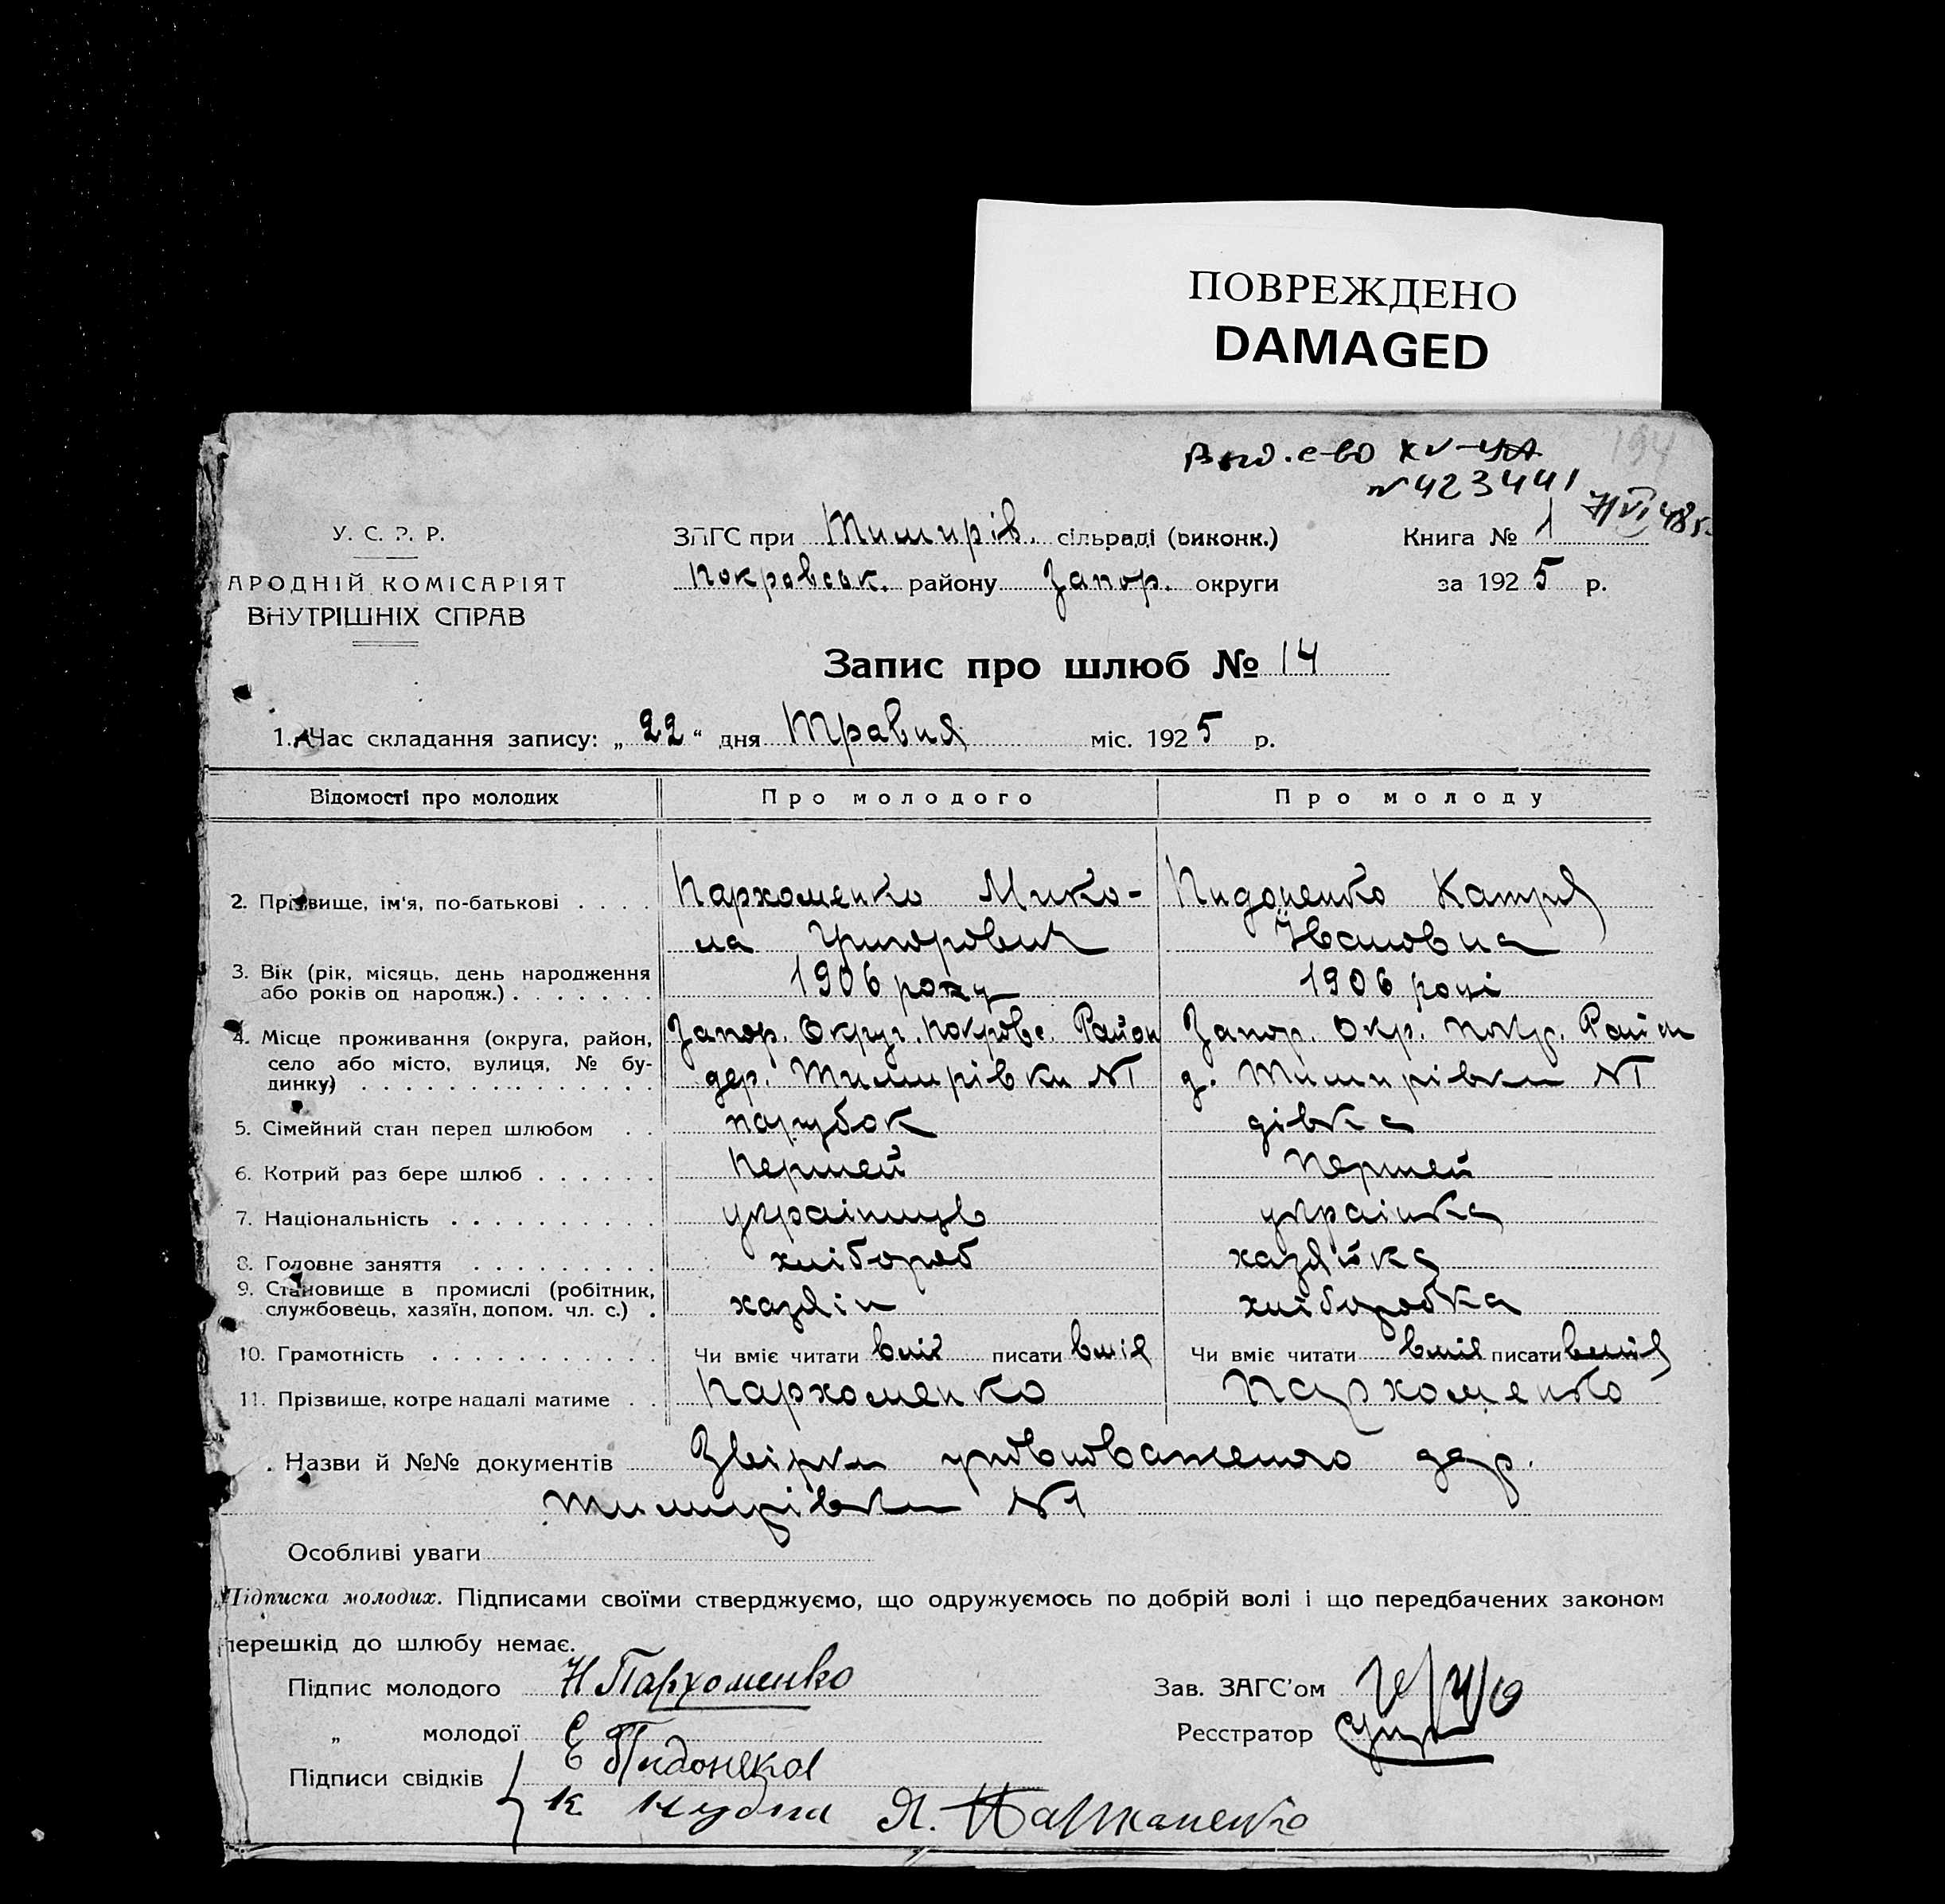 ПОВРЕЖДЕНО
DAMAGED
194
№ 423441
У. С. Р. Р.
АРОДНІЙ КОМІСАРІЯТ
ВНУТРІШНІХ СПРАВ
ЗАГС при Тимирів. сільраді (виконк.)
Покровськ. району Запор. округи
Книга № 1
за 1925 р.
Запис про шлюб № 14
1. Час складання запису: „22“ дня Травня міс. 1925 р.
Відомості про молодих Про молодого Про молоду
2. Прізвище, ім'я, по-батькові . . . . Пархоменко Мико- Пидоненко Катря
ла Григорович Івановна
3. Вік (рік, місяць, день народження
або років од народж.) . . . . . . . 1906 року 1906 році
4. Місце проживання (округа, район, Запор. Округ. Покровс. Район Запор. Окр. Покр. Район
село або місто, вулиця, № бу-
динку) . . . . . . . . . . . . . дер. Тимирівки №1 д. Тимирівки №1
5. Сімейний стан перед шлюбом . . парубок дівка
6. Котрий раз бере шлюб . . . . . . Першей Першей
7. Національність . . . . . . . . . . україниць українка
8. Головне заняття . . . . . . . . . хлібороб хазяйка
9. Становище в промислі (робітник,
службовець, хазяїн, допом. чл. с.) . хазяін хліборобка
10. Грамотність . . . . . . . . . . . Чи вміє читати вміє писати вміє Чи вміє читати вміє писати вміє
11. Прізвище, котре надалі матиме . . Пархоменко Пархоменко
. Назви й №№ документів Звірки уповноваженого дер.
Тимирівки №1
Особливі уваги
Підписка молодих. Підписами своїми стверджуємо, що одружуємось по добрій волі і що передбачених законом
перешкід до шлюбу немає.
Підпис молодого Н Пархоменко
Зав. ЗАГС'ом
„ молодої Е Пидонека
Реєстратор
Підписи свідків